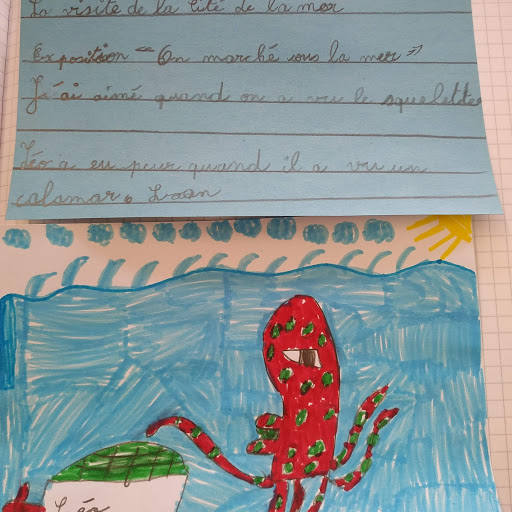 La visite de la Cité de la mer
Exposition "On marché sous la mer"
J'ai aimé quand on a vu le squelette
Léo a eu peur quand il a vu un
calamar. Loan
Léo